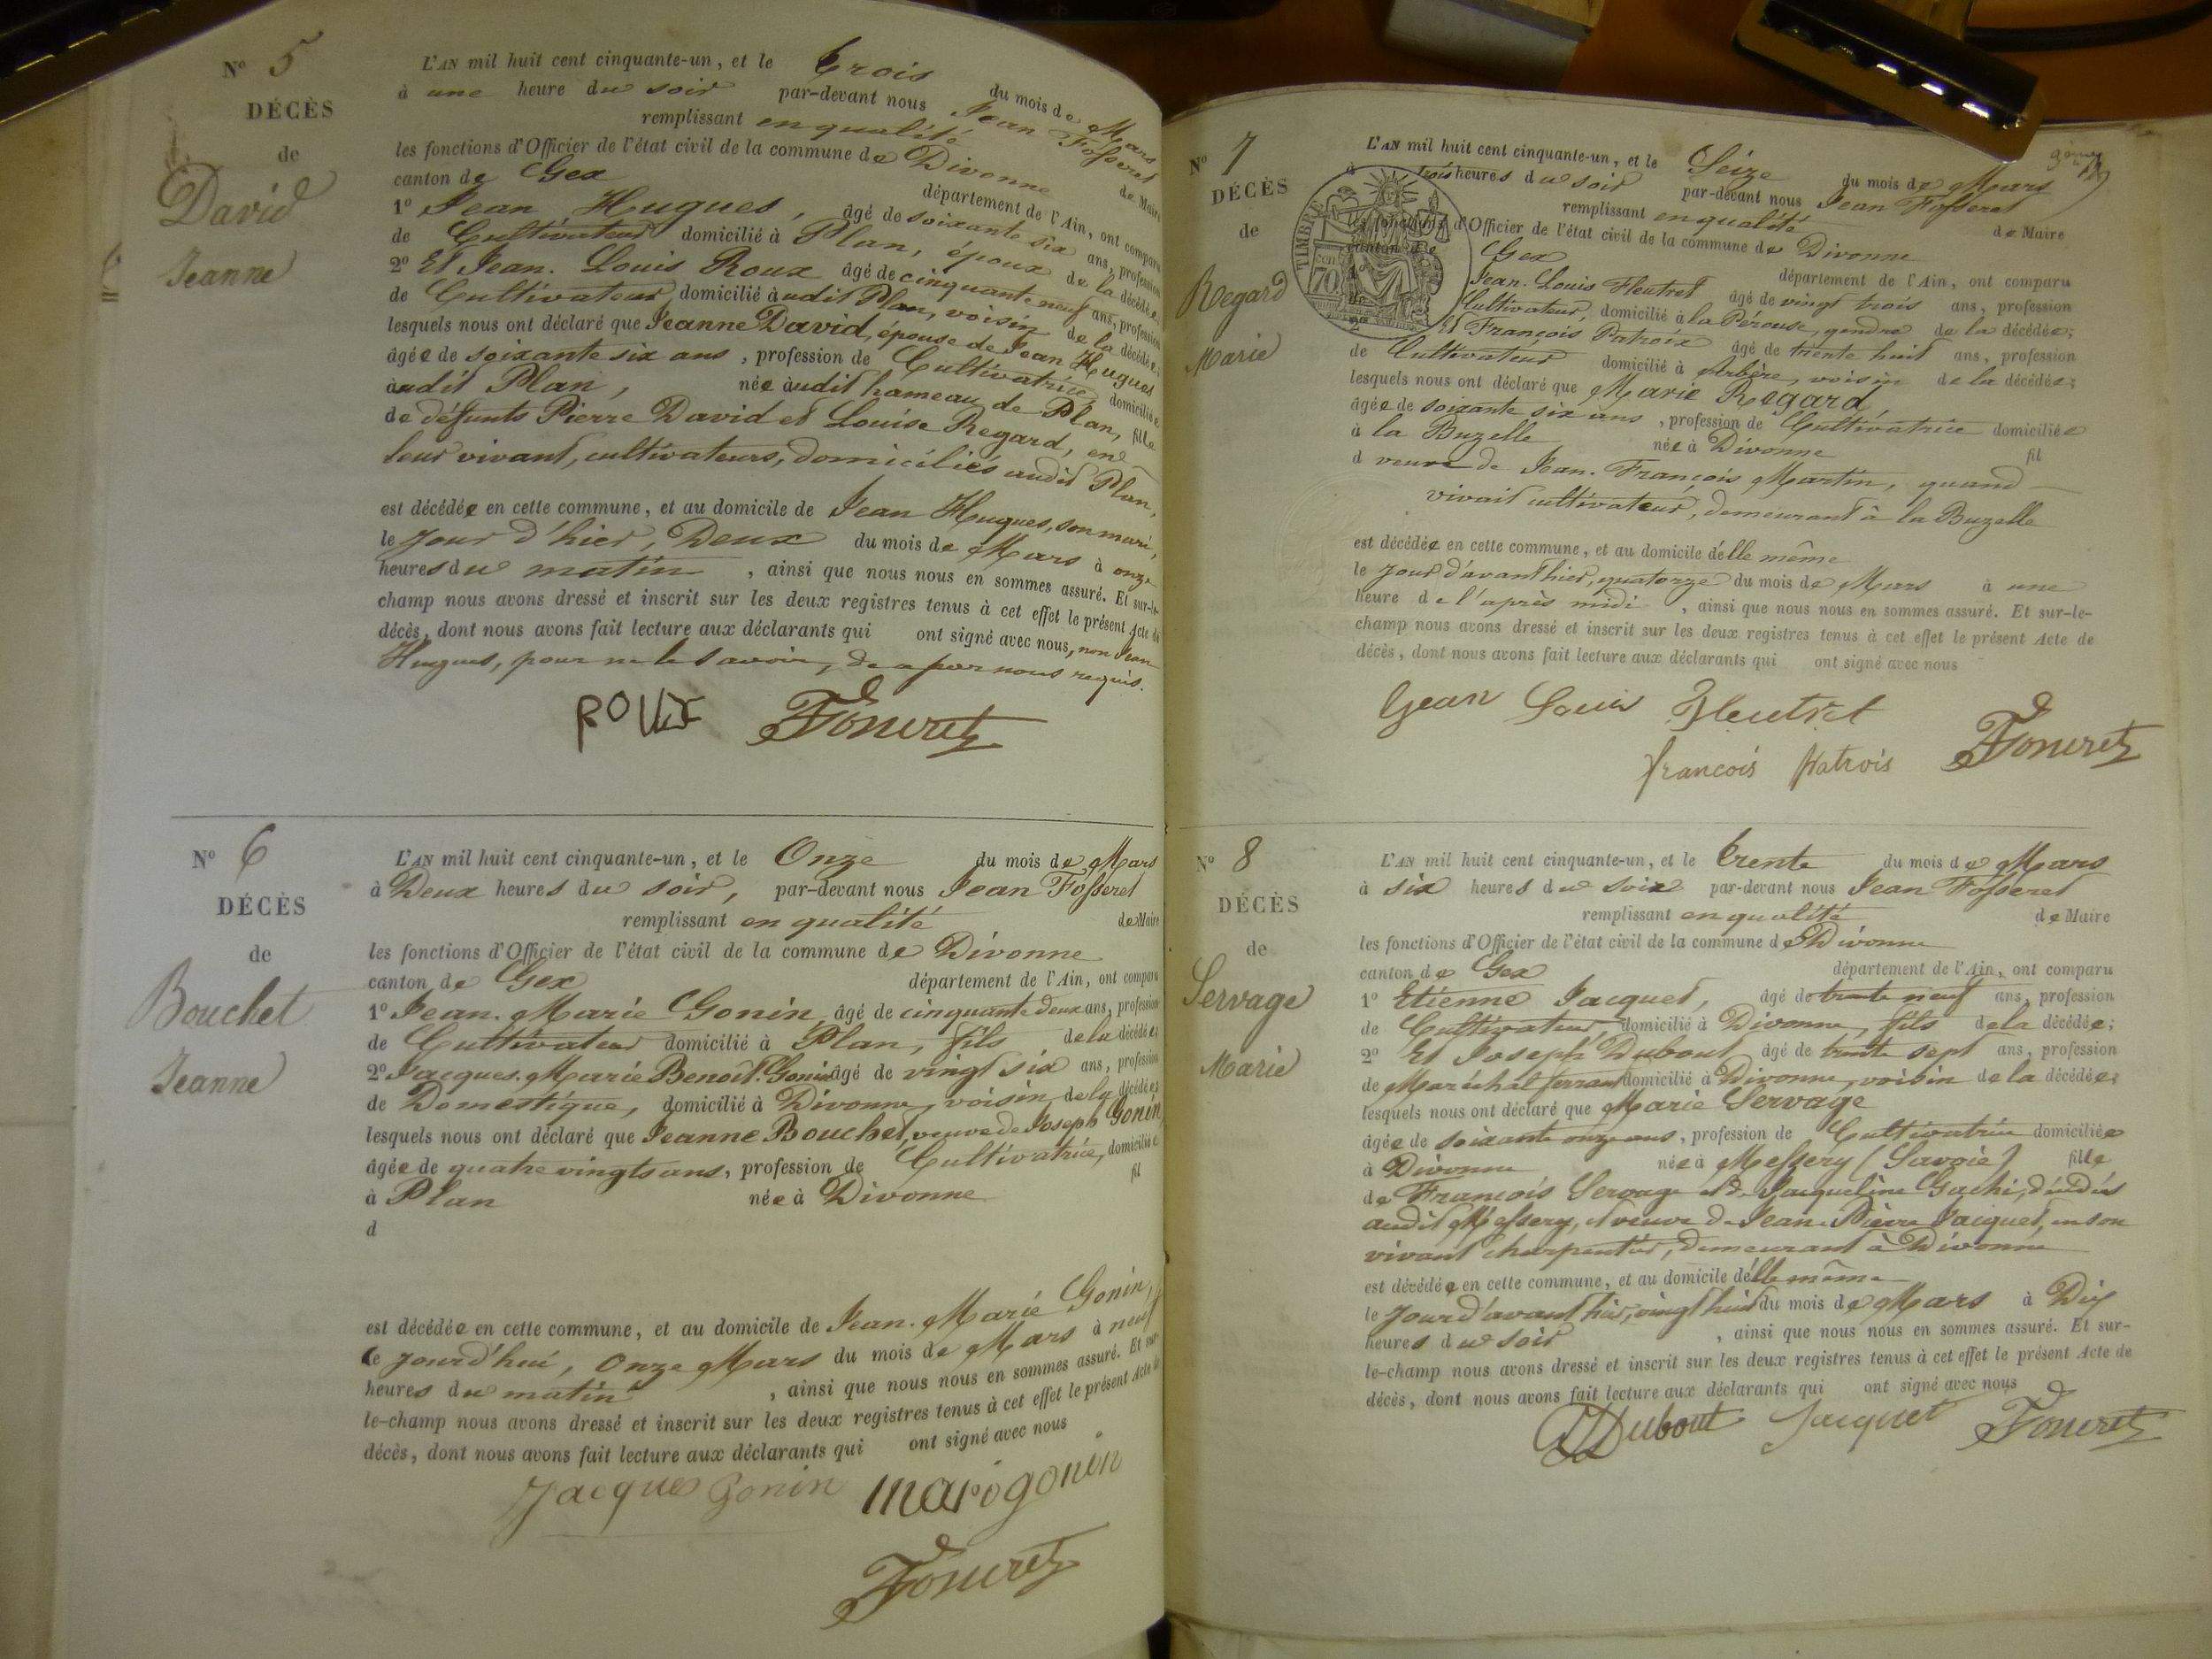 N° 5
DÉCÈS
de
David
Jeanne
L'AN mil huit cent cinquante-un, et le Trois du mois de Mars
à une heure du soir par-devant nous Jean Fosseret
remplissant en qualité de Maire
les fonctions d'Officier de l'état civil de la commune de Divonne
canton de Gex département de l'Ain, ont comparu
1° Jean Hugues, âgé de soixante six ans, profession
de Cultivateur domicilié à Plan, époux de la décédée
2° Et Jean-Louis Roux âgé de cinquante neuf ans, profession
de Cultivateur, domicilié audit Plan, voisin de la décédée;
lesquels nous ont déclaré que Jeanne David, épouse de Jean Hugues
âgée de soixante six ans, profession de Cultivatrice domiciliée
audit Plan, née audit hameau de Plan, fille
de défunts Pierre David et Louise Regard, en
leur vivant, cultivateurs, domiciliés audit Plan,
est décédée en cette commune, et au domicile de Jean Hugues, son mari,
le jour d'hier, Deux du mois de Mars à onze
heures du matin, ainsi que nous nous en sommes assuré. Et sur-le-
champ nous avons dressé et inscrit sur les deux registres tenus à cet effet le présent Acte de
décès, dont nous avons fait lecture aux déclarants qui ont signé avec nous, non Jean
Hugues, pour ne le savoir, de ce par nous requis.
ROUX Fosseret
N° 6
DÉCÈS
de
Bouchet
Jeanne
L'AN mil huit cent cinquante-un, et le Onze du mois de Mars
à Deux heures du soir, par-devant nous Jean Fosseret
remplissant en qualité de Maire
les fonctions d'Officier de l'état civil de la commune de Divonne
canton de Gex département de l'Ain, ont comparu
1° Jean-Marie Gonin, âgé de cinquante deux ans, profession
de Cultivateur domicilié à Plan, fils de la décédée;
2° Jacques-Marie Benoit Gonin âgé de vingt six ans, profession
de Domestique, domicilié à Divonne, voisin de la décédée;
lesquels nous ont déclaré que Jeanne Bouchet, veuve de Joseph Gonin,
âgée de quatre vingts ans, profession de Cultivatrice, domiciliée
à Plan née à Divonne fil
d
est décédée en cette commune, et au domicile de Jean-Marie Gonin,
le jourd'hui, Onze Mars du mois de Mars à neuf
heures du matin, ainsi que nous nous en sommes assuré. Et sur-
le-champ nous avons dressé et inscrit sur les deux registres tenus à cet effet le présent Acte de
décès, dont nous avons fait lecture aux déclarants qui ont signé avec nous
Jacques Gonin mari gonin
Fosseret
N° 7
DÉCÈS
de
Regard
Marie
TIMBRE
70
L'AN mil huit cent cinquante-un, et le Seize du mois de Mars
à trois heures du soir par-devant nous Jean Fosseret
remplissant en qualité de Maire
les fonctions d'Officier de l'état civil de la commune de Divonne
canton de Gex département de l'Ain, ont comparu
1° Jean-Louis Fleutret âgé de vingt trois ans, profession
de Cultivateur, domicilié à la Pérouse, gendre de la décédée;
2° Et François Patroix âgé de trente huit ans, profession
de Cultivateur domicilié à Arbère, voisin de la décédée;
lesquels nous ont déclaré que Marie Regard,
âgée de soixante six ans, profession de Cultivatrice domiciliée
à la Buzelle née à Divonne fil
d veuve de Jean-François Martin, quand
vivait cultivateur, demeurant à la Buzelle
est décédée en cette commune, et au domicile d'elle même
le jour d'avant hier, quatorze du mois de Mars à une
heure de l'après midi, ainsi que nous nous en sommes assuré. Et sur-le-
champ nous avons dressé et inscrit sur les deux registres tenus à cet effet le présent Acte de
décès, dont nous avons fait lecture aux déclarants qui ont signé avec nous
Jean Louis Fleutret
françois patrois Fosseret
N° 8
DÉCÈS
de
Servage
Marie
L'AN mil huit cent cinquante-un, et le Trente du mois de Mars
à six heures du soir par-devant nous Jean Fosseret
remplissant en qualité de Maire
les fonctions d'Officier de l'état civil de la commune de Divonne
canton de Gex département de l'Ain, ont comparu
1° Etienne Jacquet, âgé de trente neuf ans, profession
de Cultivateur, domicilié à Divonne, fils de la décédée;
2° Et Joseph Dubout âgé de trente sept ans, profession
de Maréchal ferrant domicilié à Divonne, voisin de la décédée;
lesquels nous ont déclaré que Marie Servage
âgée de soixante onze ans, profession de Cultivatrice domiciliée
à Divonne née à Messery (Savoie) fille
de François Servage et de Jacqueline Gachi, décédés
audit Messery, et veuve de Jean-Pierre Jacquet, en son
vivant charpentier, demeurant à Divonne
est décédée en cette commune, et au domicile d'elle même
le jour d'avant hier, vingt huit du mois de Mars à Dix
heures du soir, ainsi que nous nous en sommes assuré. Et sur-
le-champ nous avons dressé et inscrit sur les deux registres tenus à cet effet le présent Acte de
décès, dont nous avons fait lecture aux déclarants qui ont signé avec nous
Dubout Jacquet Fosseret